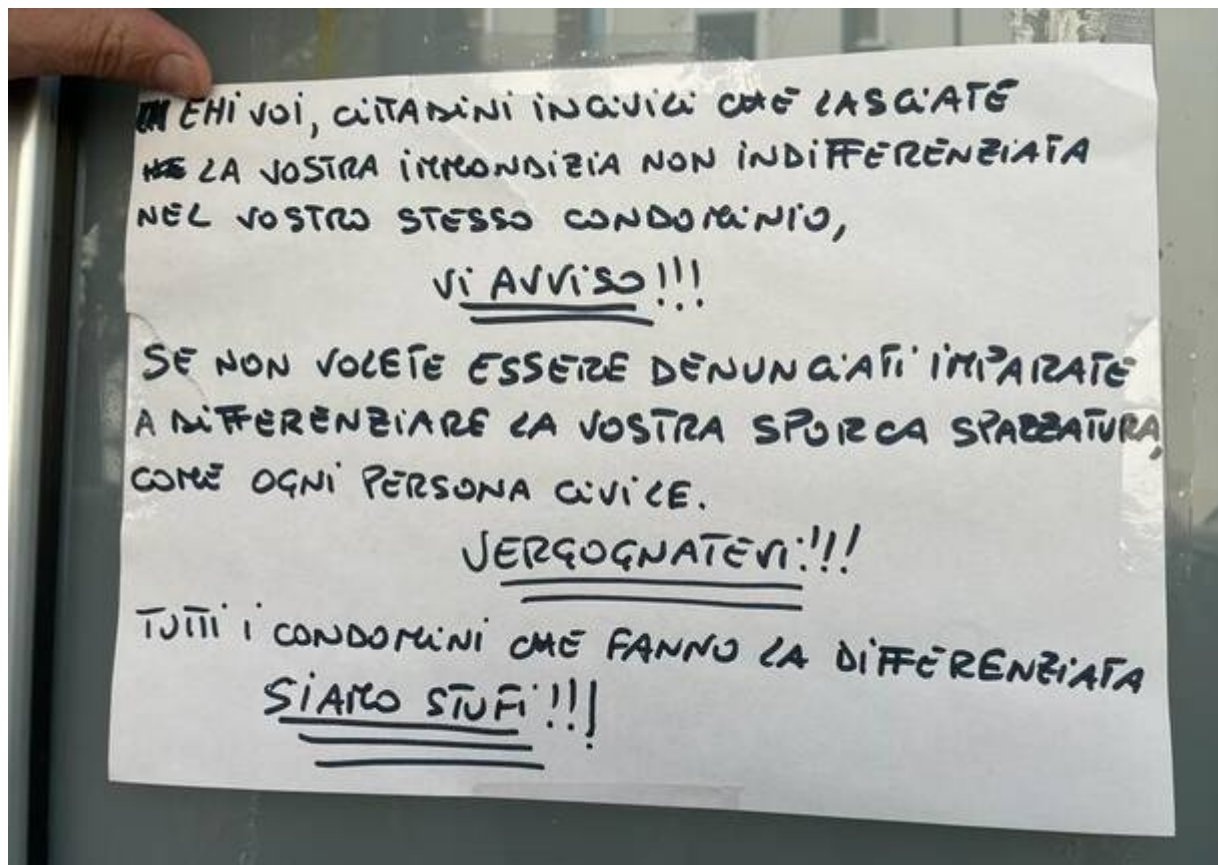 EHI VOI, CITTADINI INCIVILI CHE LASCIATE
LA VOSTRA IMMONDIZIA NON INDIFFERENZIATA
NEL VOSTRO STESSO CONDOMINIO,
VI AVVISO!!!
SE NON VOLETE ESSERE DENUNCIATI IMPARATE
A DIFFERENZIARE LA VOSTRA SPORCA SPAZZATURA,
COME OGNI PERSONA CIVILE.
VERGOGNATEVI!!!
TUTTI I CONDOMINI CHE FANNO LA DIFFERENZIATA
SIAMO STUFI!!!